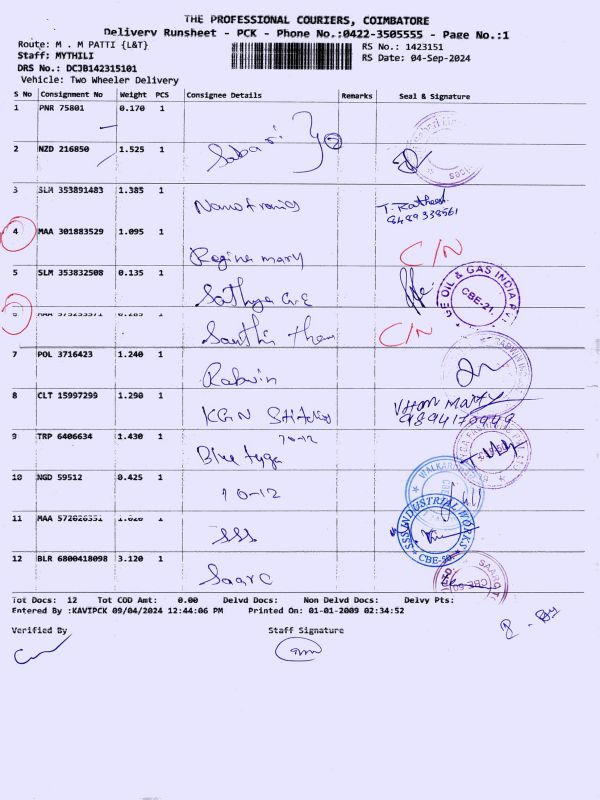 THE PROFESSIONAL COURIERS, COIMBATORE
Delivery Runsheet - PCK - Phone No.:0422-3505555 - Page No.:1
Route: M . M PATTI {L&T}
RS No.: 1423151
Staff: MYTHILI
RS Date: 04-Sep-2024
DRS No.: DCJB142315101
Vehicle: Two Wheeler Delivery
S No Consignment No Weight PCS Consignee Details Remarks Seal & Signature
1 PNR 75801 0.170 1
2 NZD 216850 1.525 1 Sabari
3 SLM 353891483 1.385 1 Nanotronics T. Ratheesh
8489338561
4 MAA 301883529 1.095 1 Regina mary C/N
5 SLM 353832508 0.135 1 Sathya G.E OIL & GAS INDIA CBE-21.
6 1 Santhi C/N
7 POL 3716423 1.240 1 Rabwin
8 CLT 15997299 1.290 1 KGN Stickers
9894170949
9 TRP 6406634 1.430 1 Blue
10-12
10 NGD 59512 0.425 1 10-12
11 MAA 1 SSS SSS INDUSTRIAL WORKS CBE-50.
12 BLR 6800418098 3.120 1 Saarc
Tot Docs: 12 Tot COD Amt: 0.00 Delvd Docs: Non Delvd Docs: Delvy Pts:
Entered By :KAVIPCK 09/04/2024 12:44:06 PM Printed On: 01-01-2009 02:34:52
Verified By Staff Signature